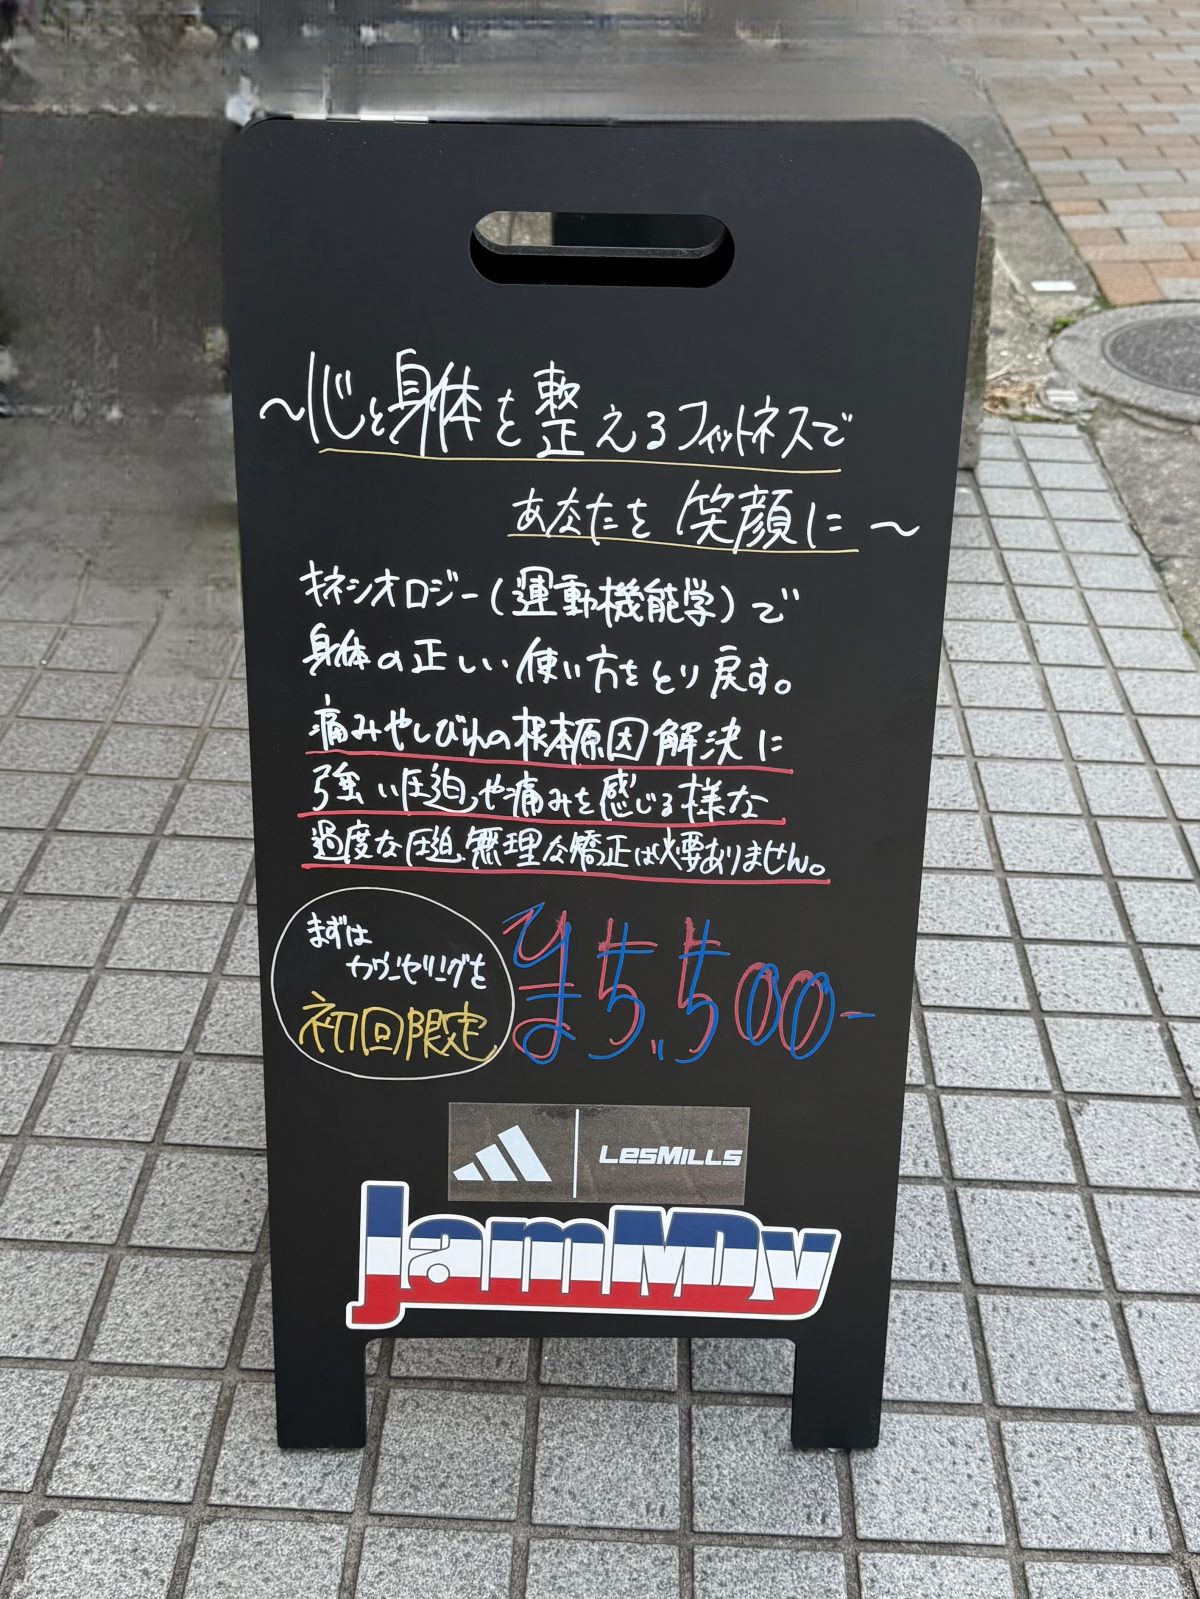 ～心と身体を整えるフィットネスで
あなたを笑顔に～
キネシオロジー(運動機能学)で
身体の正しい使い方をとり戻す。
痛みやしびれの根本原因解決に
強い圧迫や痛みを感じる様な
過度な圧迫、無理な矯正は必要ありません。
まずは
カウンセリングを
初回限定
5,500-
LesMILLS
JamMDy